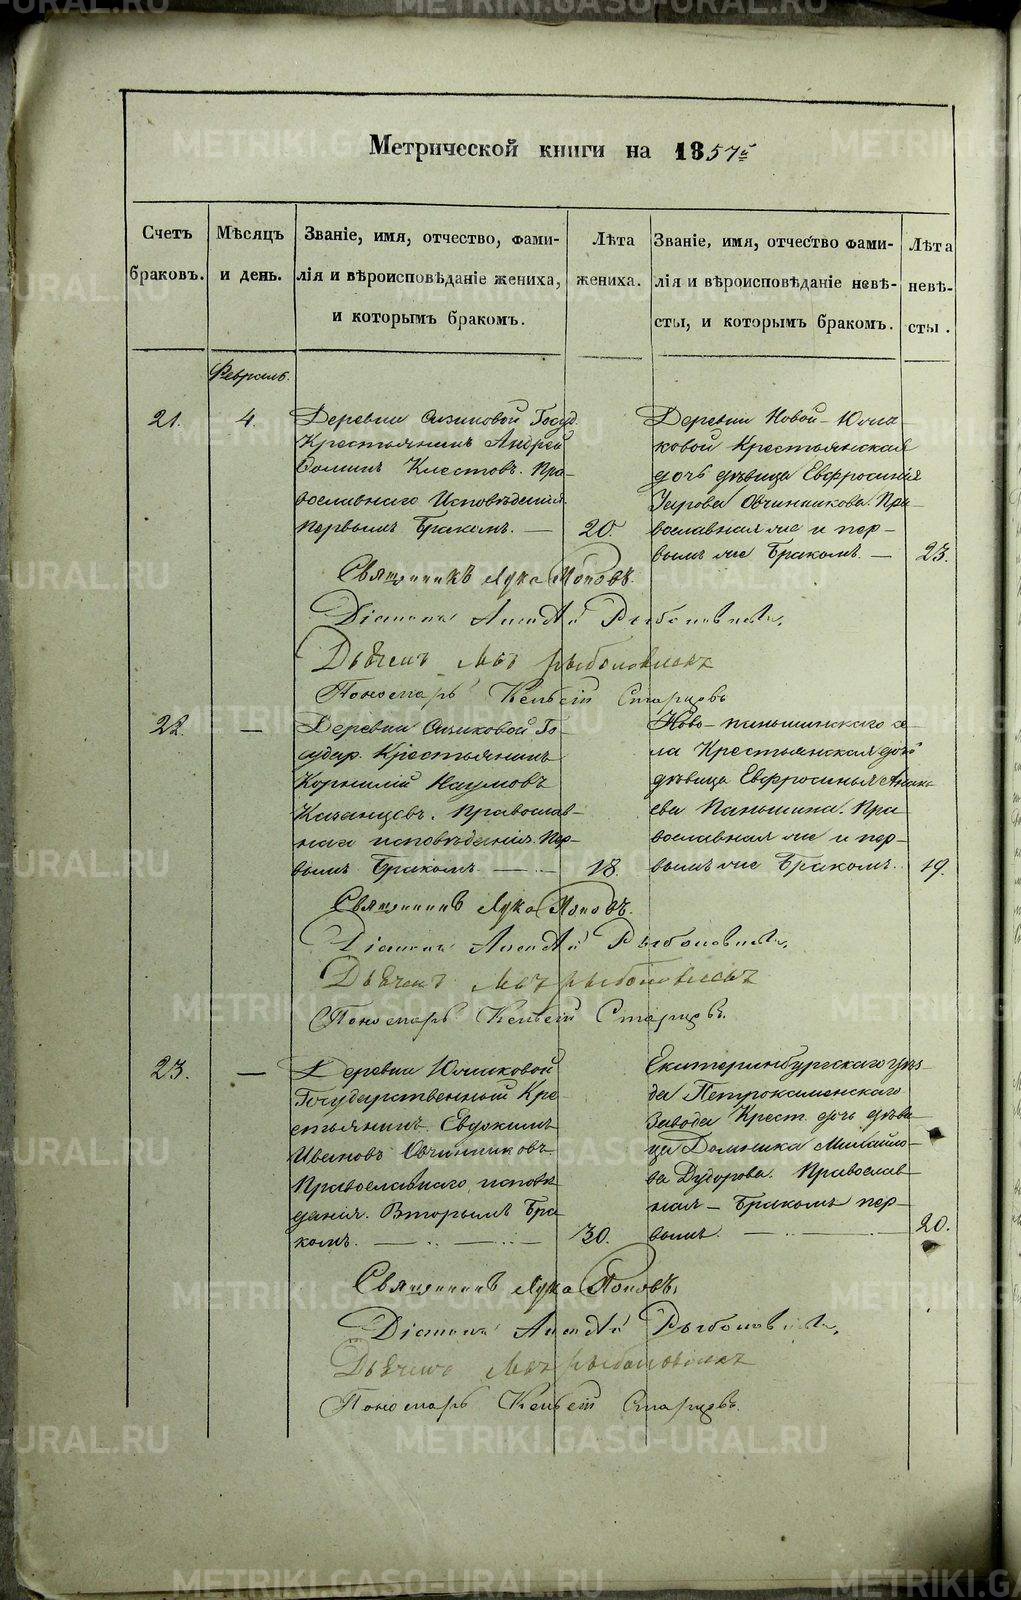 Метрической книги на 1857й
Счетъ браковъ.
Мѣсяцъ и день.
Званіе, имя, отчество, фами-
лія и вѣроисповѣданіе жениха,
и которымъ бракомъ.
Лѣта жениха.
Званіе, имя, отчество фами-
лія и вѣроисповѣданіе невѣ-
сты, и которымъ бракомъ.
Лѣта невѣ-
сты.
Февраль.
21.
4.
Деревни Сизиковой Госуд.
Крестьянинъ Андрей
Клестовъ. Пра-
вославнаго Исповѣданія
первымъ Бракомъ. —
20.
Деревни Новой-Юлма-
ковой Крестьянская
дочь дѣвица Евфросинія
Овчинникова. Пра-
вославная же и пер-
вымъ же Бракомъ. —
23.
Священникъ Лука Поповъ.
Діаконъ
Дьячекъ
Пономарь Старцовъ
22.
—
Деревни Сизиковой Го-
судар. Крестьянинъ
Корнилій Наумовъ
Казанцовъ. Православ-
наго исповѣданія. Пер-
вымъ Бракомъ. —
18.
Ново-паньшинскаго се-
ла Крестьянская дочь
дѣвица Евфросинья
Паньшина. Пра-
вославная же и пер-
вымъ же Бракомъ.
19.
Священникъ Лука Поповъ.
Діаконъ
Дьячекъ
Пономарь Старцовъ.
23.
—
Деревни Юлмаковой
Государственный Кре-
стьянинъ Евдокимъ
Ивановъ Овчинниковъ
Православнаго исповѣ-
данія. Вторымъ Бра-
комъ. —
30.
Екатеринбургскаго уѣз-
да Петрокаменскаго
Завода Крест. дочь дѣви-
ца Домника Михайло-
ва Дудорова. Православ-
ная — Бракомъ пер-
вымъ. —
20.
Священникъ Лука Поповъ.
Діаконъ
Дьячекъ
Пономарь Старцовъ.
METRIKI.GASO-URAL.RU